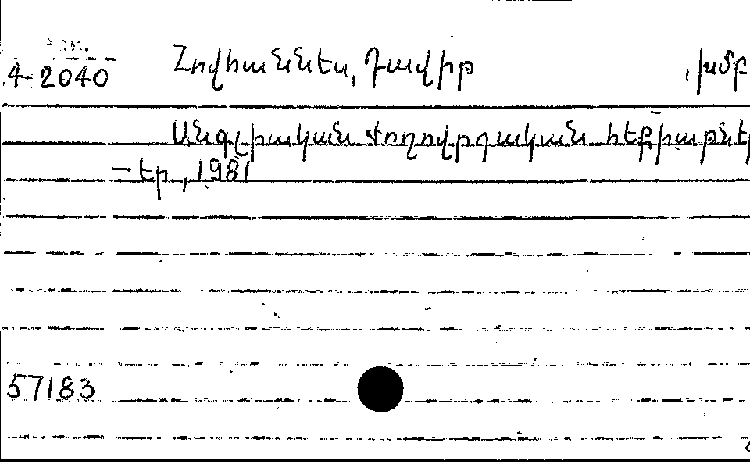 4-2040 Հովհաննես, Դավիթ , խմբ
Անգլիական ժողովրդական հեքիաթներ
– Եր., 1981
57183